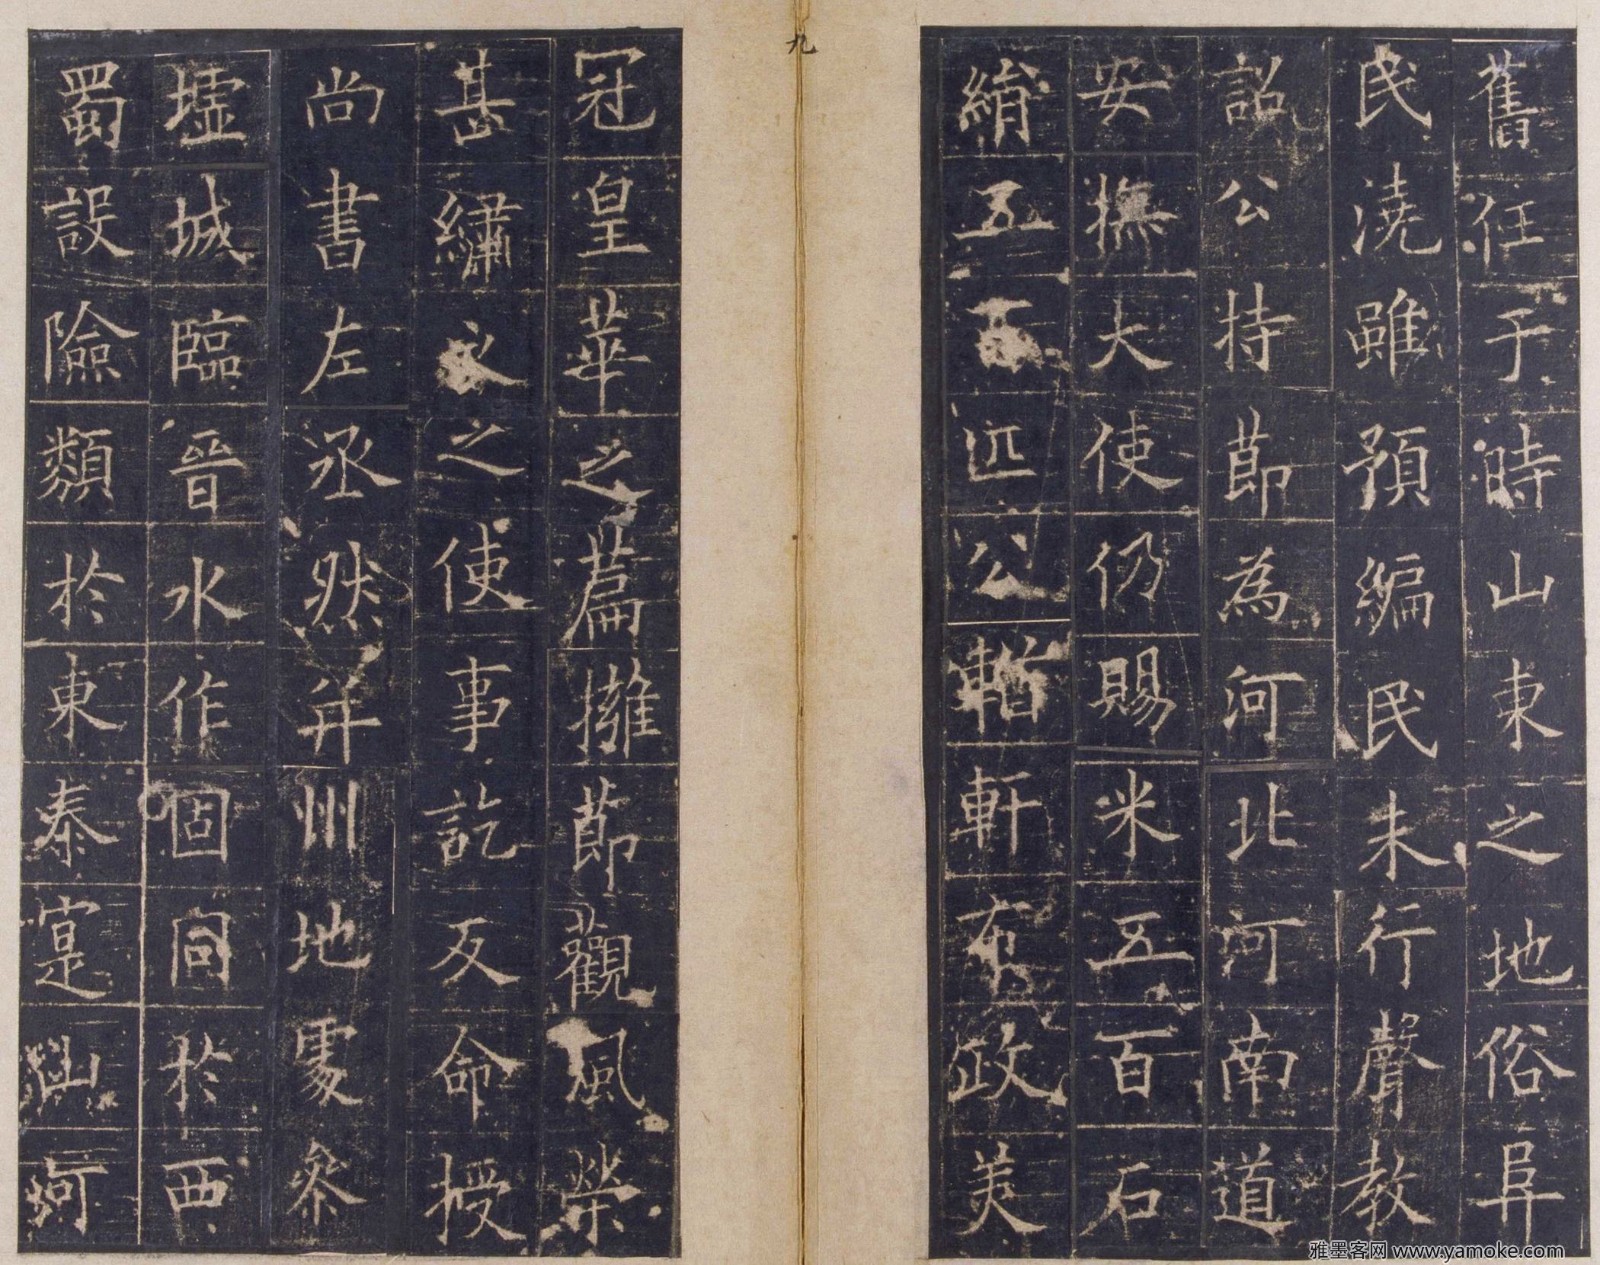 舊任于時山東之地俗阜
民澆雖預編民未行聲教
詔公持節為河北河南道
安撫大使仍賜米五百石
絹五百匹公輶軒布政美
九
冠皇華之篇擁節觀風榮
甚繡衣之使事訖反命授
尚書左丞然并州地處參
墟城臨晉水作固同於西
蜀設險類於東秦寔山河
雅墨客网 www.yamoke.com